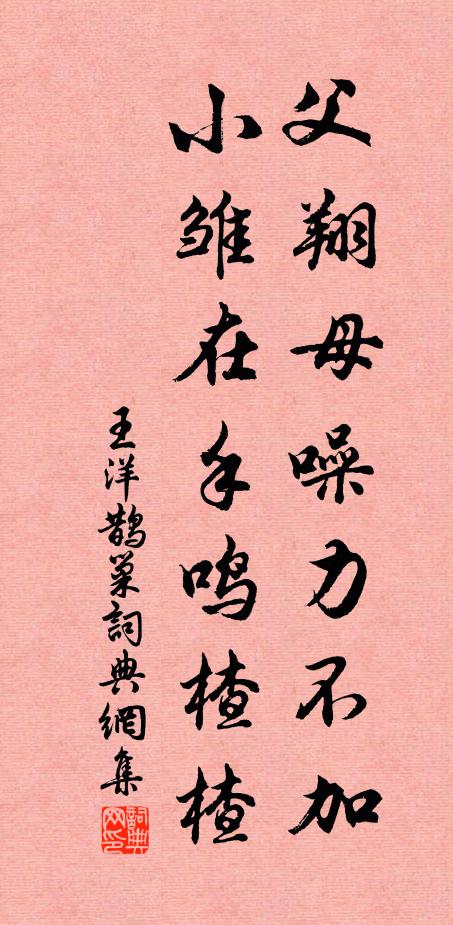 父翔母噪力不加
小雏在手鸣楂楂
王洋鵲巢詞典網集
詞典网印